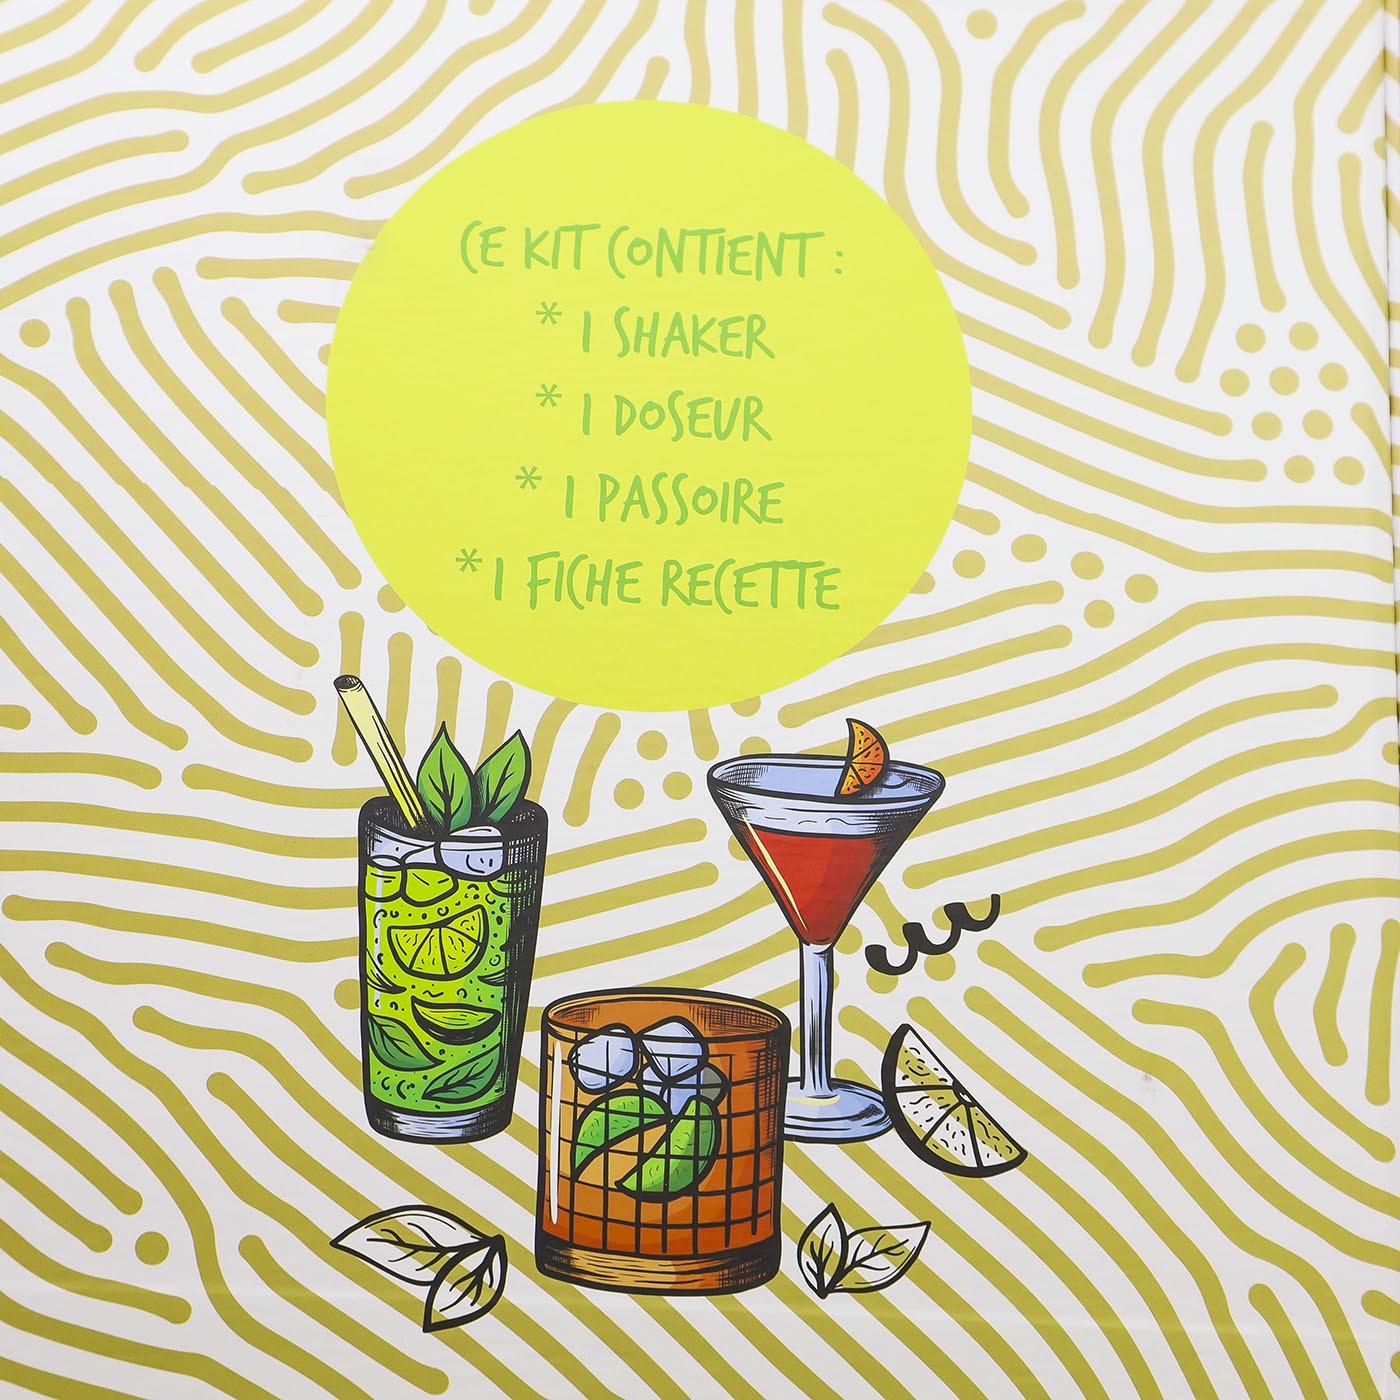 CE KIT CONTIENT :
* 1 SHAKER
* 1 DOSEUR
* 1 PASSOIRE
* 1 FICHE RECETTE